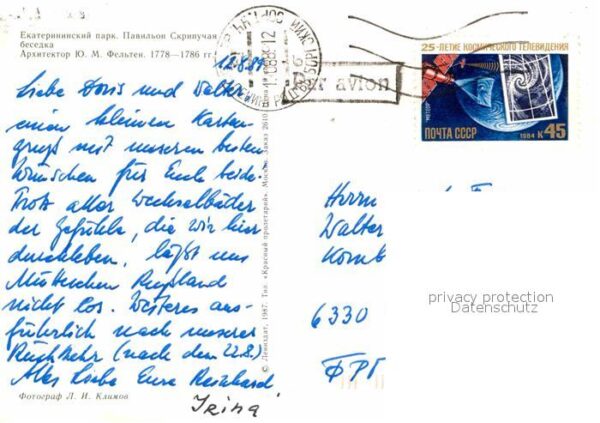 Екатерининский парк. Павильон Скрипучая
беседка
Архитектор Ю. М. Фельтен. 1778—1786 гг.
12.8.89
Liebe Doris und Walter
einen kleinen Karten-
gruß mit unseren besten
Wünschen für Euch beide.
Trotz aller Wechselbäder
der Gefühle, die wir hier
durchleben, läßt uns
Mütterchen Rußland
nicht los. Weiteres aus-
führlich nach unserer
Rückkehr (nach dem 22.8.)
Alles Liebe Eure Reinhard
Irina
Фотограф Л. И. Климов
© Лениздат, 1987. Тип. «Красный пролетарий». Москва. Заказ 2610.
Par avion
25-ЛЕТИЕ КОСМИЧЕСКОГО ТЕЛЕВИДЕНИЯ
"МЕТЕОР"
ПОЧТА СССР 1984 К 45
Herrn
Walter
Kornb
6330
ФРГ
privacy protection
Datenschutz